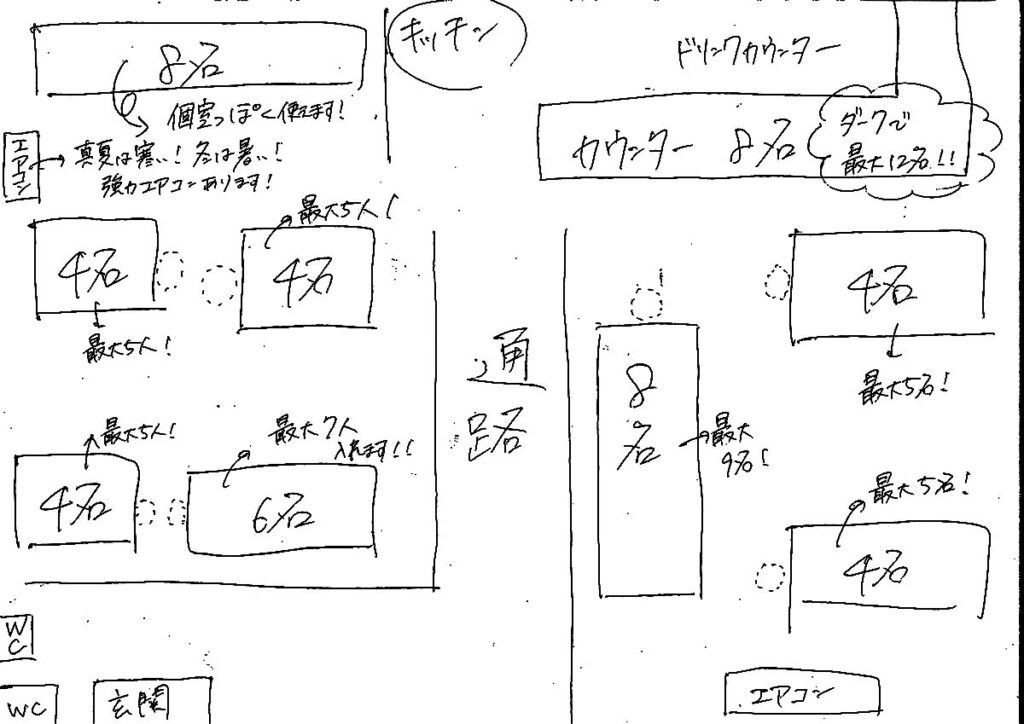 キッチン
ドリンクカウンター
8名
個室っぽく使えます!
エアコン
真夏は寒い!冬は暑い!
強力エアコンあります!
カウンター 8名
ダークで
最大12名!!
4名
最大5人!
4名
最大5人!
通路
4名
最大5名!
8名
最大
9名!
最大5人!
4名
最大7人
入れます!!
6名
最大5名!
4名
WC
WC
玄関
エアコン